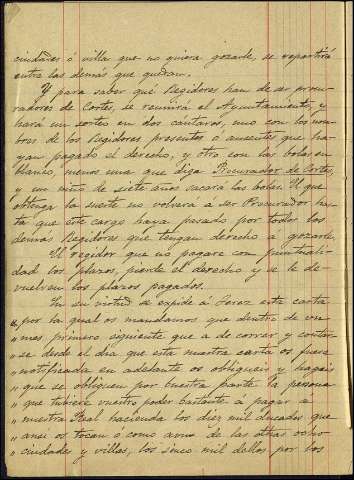 ciudades ó villa que no quiera gozarle, se repartirá
entre las demás que quedan.
Y para saber qué Regidores han de ser procu-
radores de Cortes, se reunirá el Ayuntamiento, y
hará un sorteo en dos cántaros, uno con los nom-
bres de los Regidores presentes ó ausentes que ha-
yan pagado el derecho, y otro con las bolas en
blanco, menos una que diga Procurador de Cortes,
y un niño de siete años sacará las bolas. El que
obtenga la suerte no volverá a ser Procurador has-
ta que este cargo haya pasado por todos los
demás Regidores que tengan derecho a gozarle.
El regidor que no pagare con puntuali-
dad los plazos, pierde el derecho y se le de-
vuelven los plazos pagados.
En su virtud se expide á Jerez esta carta
„ por la qual os mandamos que dentro de un
„ mes primero siguiente que a de correr y contar-
„ se desde el dia que esta nuestra carta os fuere
„ notificada en adelante os obligueis y hagais
„ que se obliguen por vuestra parte la persona
„ que tubiere vuestro poder bastante á pagar á
„ nuestra Real hacienda los diez mil ducados que
„ ansi os tocan ó como a una de las otras ocho
„ ciudades y villas, los sinco mil dellos por los